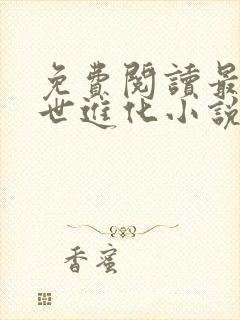 免費閱讀最
世進化小說
香蜜